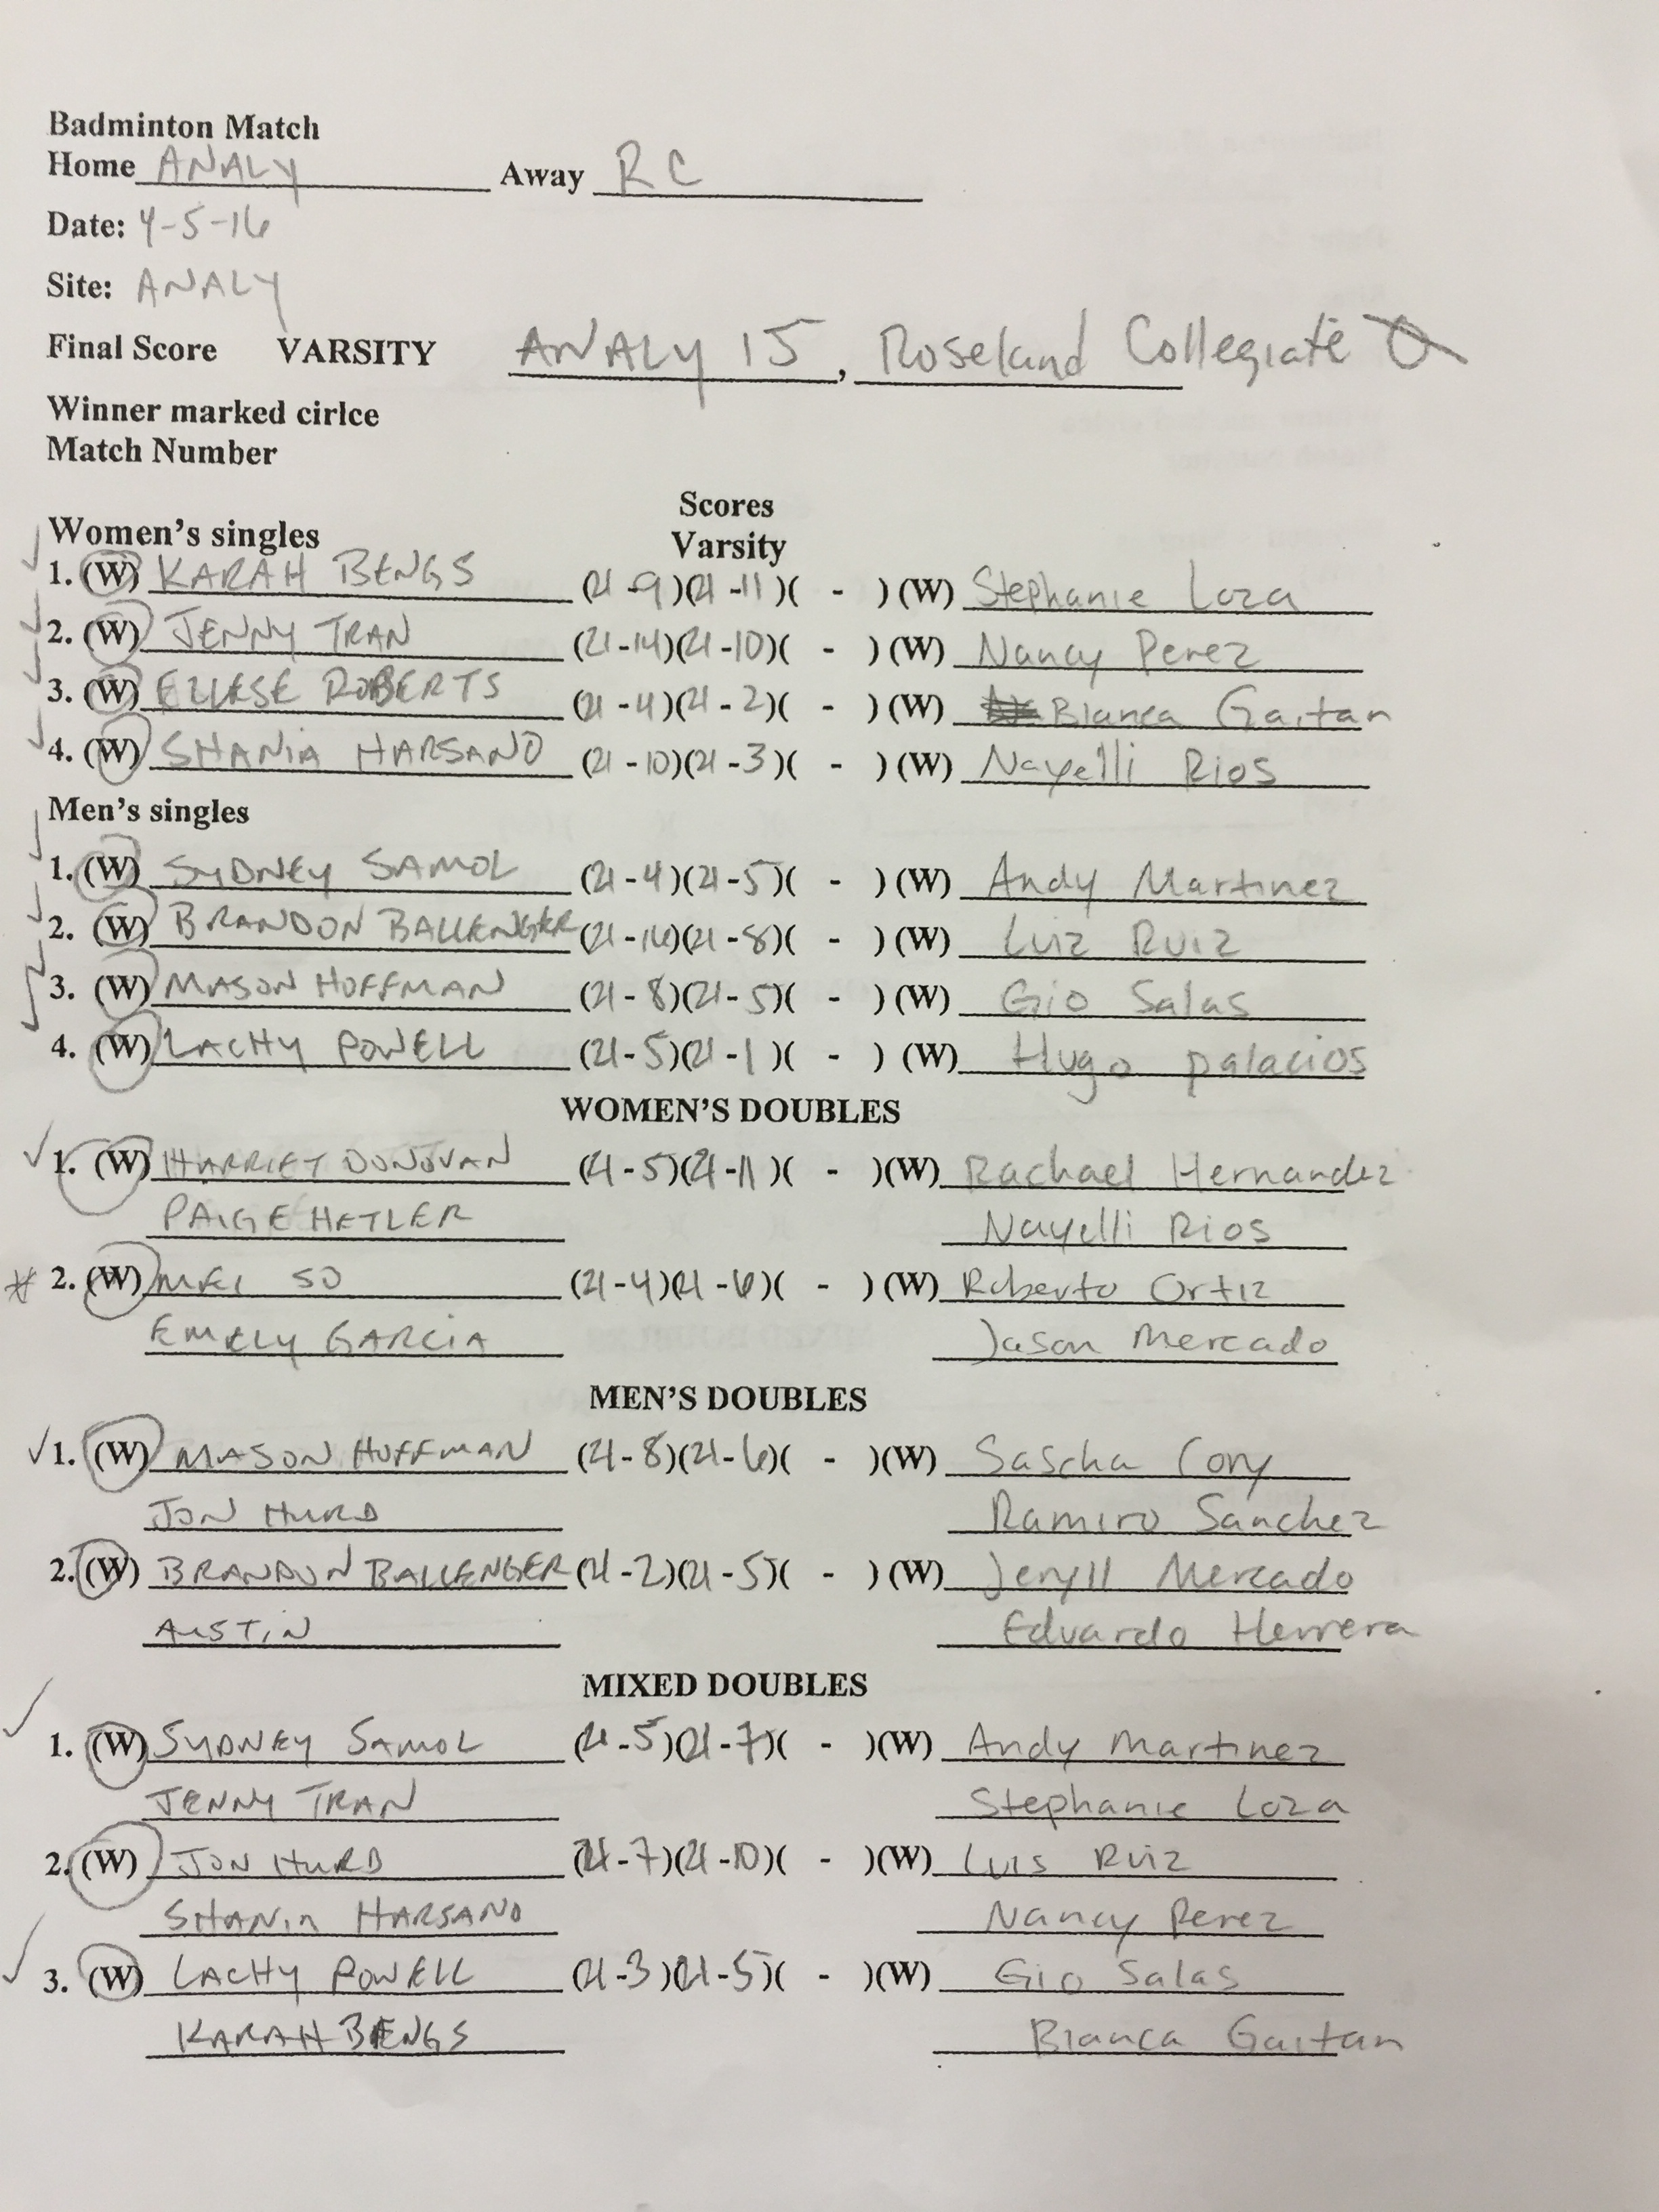 Badminton Match
Home ANALY Away RC
Date: 4-5-16
Site: ANALY
Final Score VARSITY ANALY 15, Roseland Collegiate 0
Winner marked cirlce
Match Number
Scores
Women's singles Varsity
1. (W) KARAH BENGS (21-9)(21-11)( - ) (W) Stephanie Loza
2. (W) JENNY TRAN (21-14)(21-10)( - ) (W) Nancy Perez
3. (W) ELIESE ROBERTS (21-4)(21-2)( - ) (W) Bianca Gaitan
4. (W) SHANIA HARSANO (21-10)(21-3)( - ) (W) Nayelli Rios
Men's singles
1. (W) SYDNEY SAMOL (21-4)(21-5)( - ) (W) Andy Martinez
2. (W) BRANDON BALLENGER (21-16)(21-8)( - ) (W) Luiz Ruiz
3. (W) MASON HOFFMAN (21-8)(21-5)( - ) (W) Gio Salas
4. (W) LACHY POWELL (21-5)(21-1)( - ) (W) Hugo palacios
WOMEN'S DOUBLES
1. (W) HARRIET DONOVAN (21-5)(21-11)( - )(W) Rachael Hernandez
PAIGE HETLER Nayelli Rios
2. (W) MEI SO (21-4)(21-6)( - ) (W) Roberto Ortiz
EMELY GARCIA Jason Mercado
MEN'S DOUBLES
1. (W) MASON HOFFMAN (21-8)(21-6)( - )(W) Sascha Cory
JON HURD Ramiro Sanchez
2. (W) BRANDON BALLENGER (21-2)(21-5)( - ) (W) Jeryll Mercado
AUSTIN Eduardo Herrera
MIXED DOUBLES
1. (W) SYDNEY SAMOL (21-5)(21-7)( - )(W) Andy Martinez
JENNY TRAN Stephanie Loza
2. (W) JON HURD (21-7)(21-10)( - )(W) Luis Ruiz
SHANIA HARSANO Nancy Perez
3. (W) LACHY POWELL (21-3)(21-5)( - )(W) Gio Salas
KARAH BENGS Bianca Gaitan